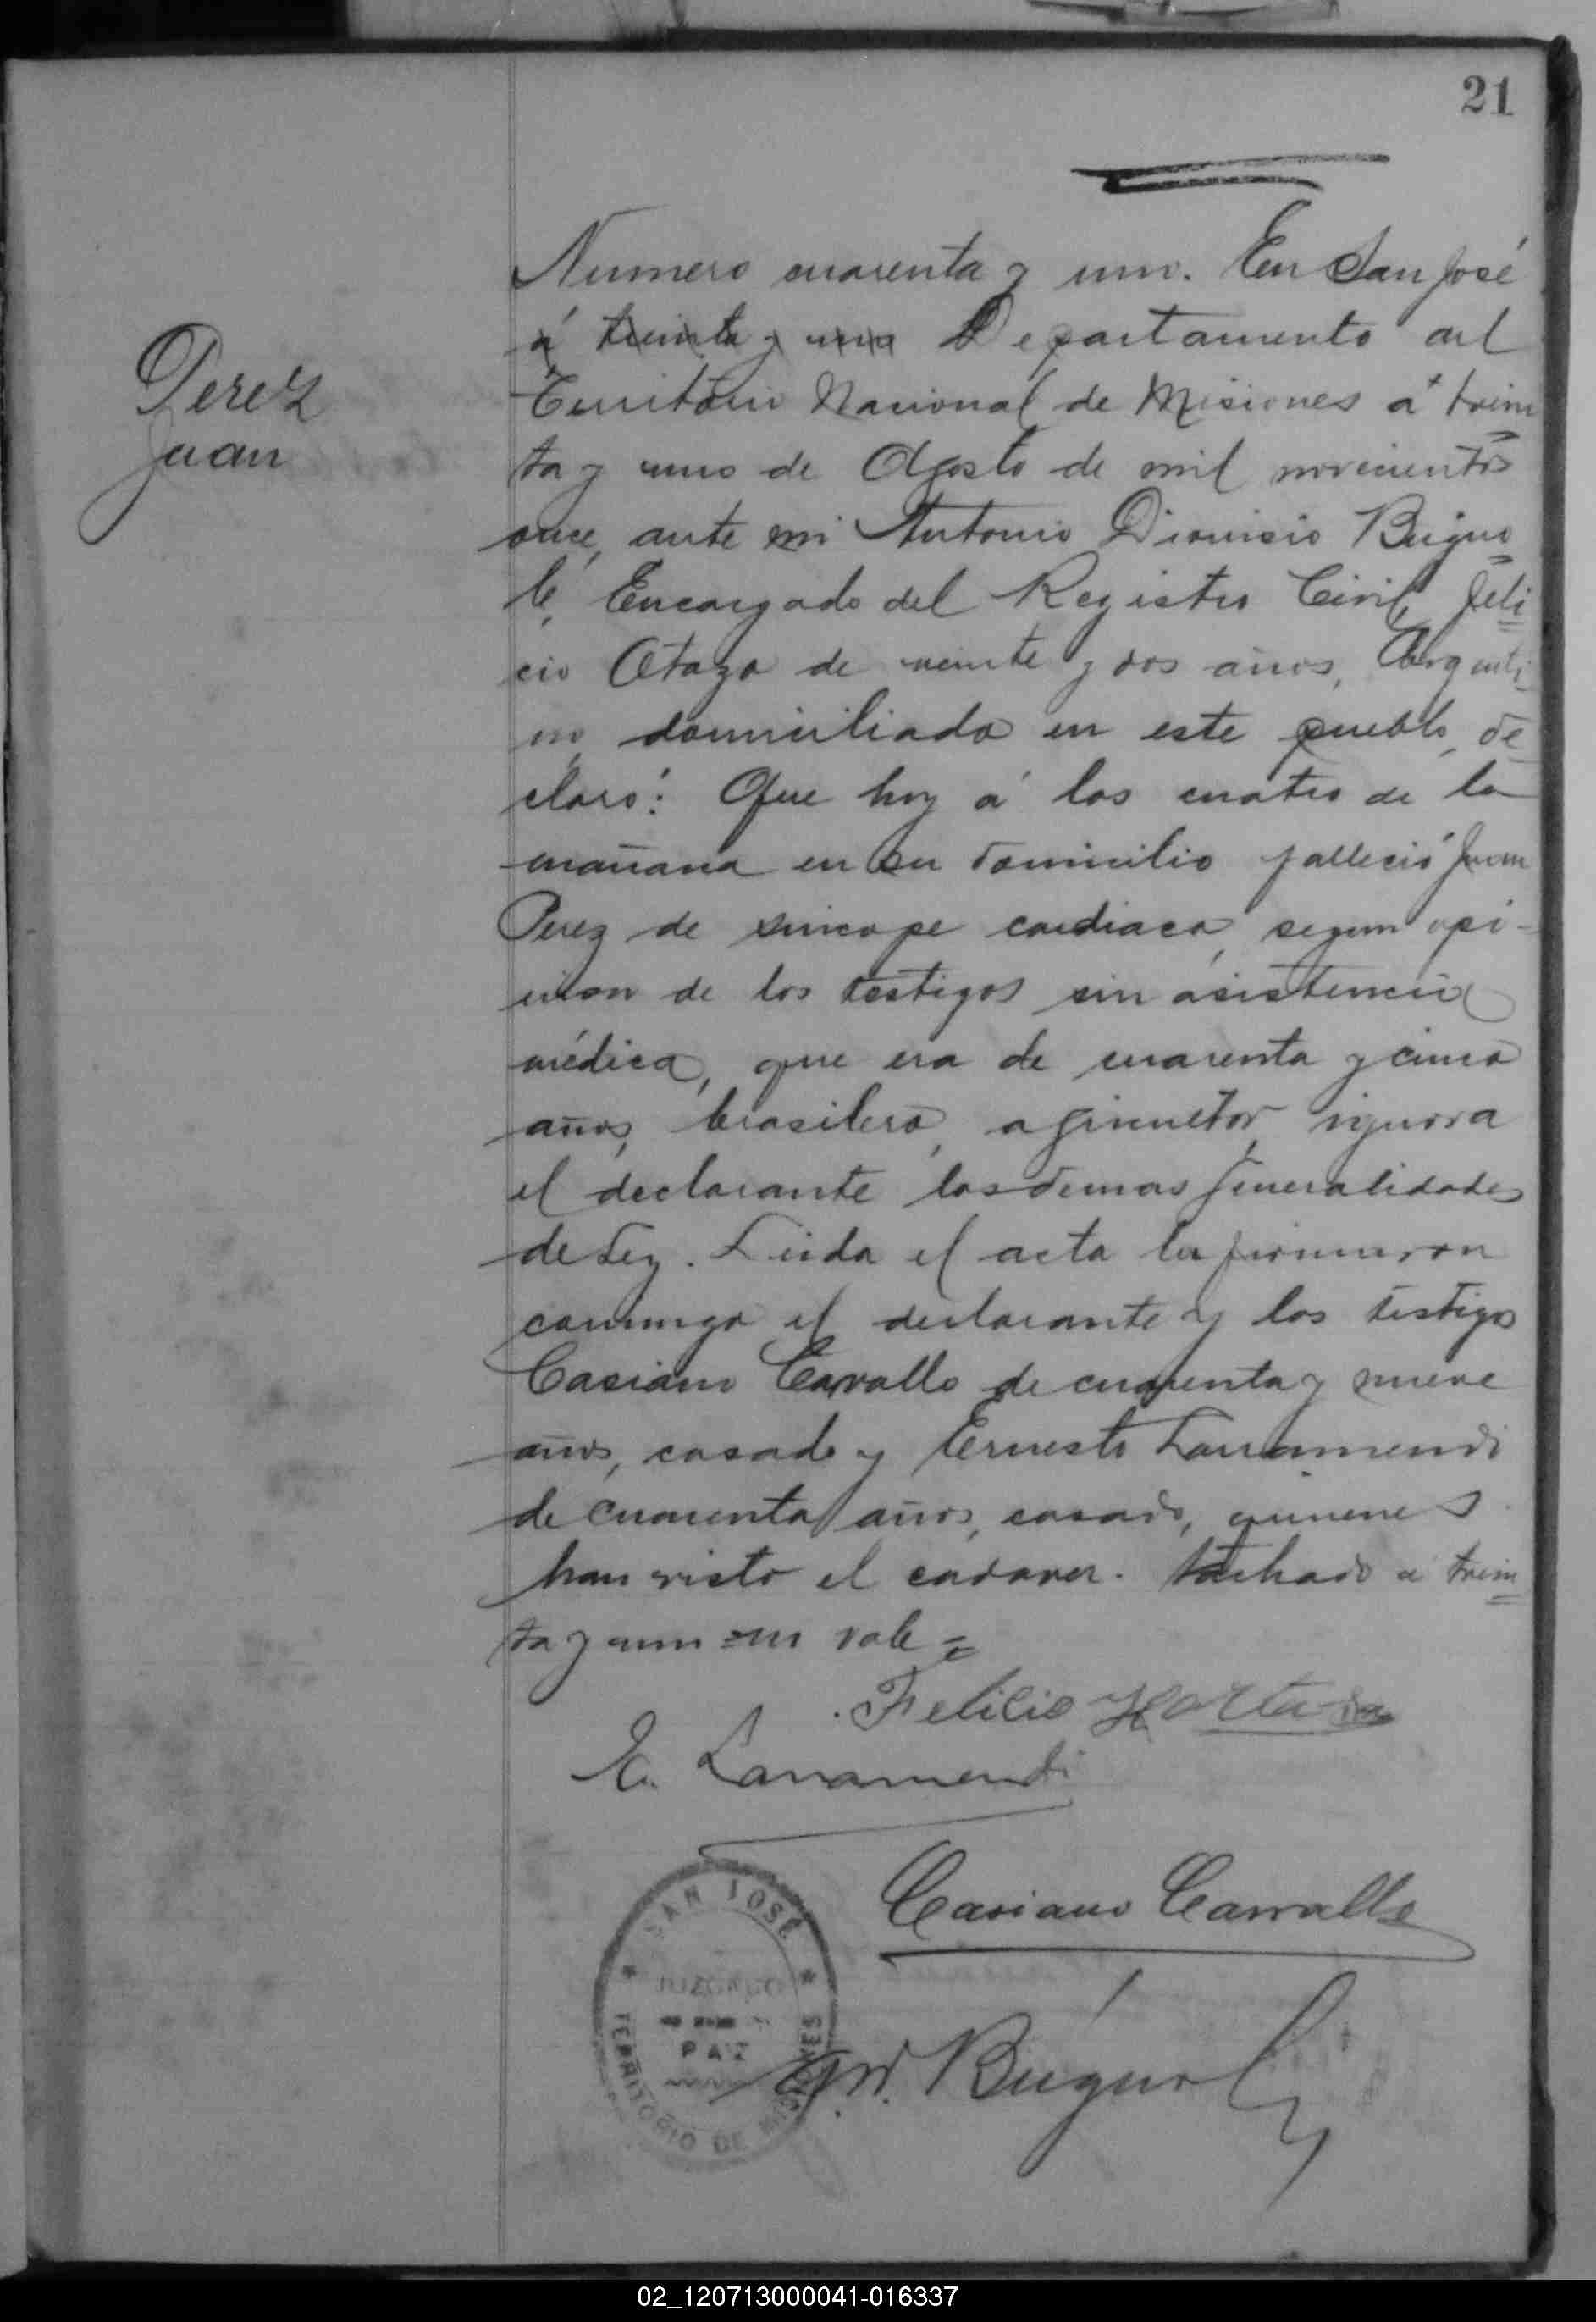 21
Perez
Juan
Numero cuarenta y uno. En San José
á treinta y uno Departamento del
Territorio Nacional de Misiones á trein
ta y uno de Agosto de mil novecientos
once, ante mi Antonio Dionisio Búguo
lé, Encargado del Registro Civil, Feli
cio Otazo de veinte y dos años, Argenti
no, domiciliado en este pueblo, de
claró: Que hoy á las cuatro de la
mañana en su domicilio falleció Juan
Perez de sincope cardiaca, segun opi-
nion de los testigos sin asistencia
médica, que era de cuarenta y cinco
años, brasilero, agricultor, ignora
el declarante las demas generalidades
de Ley. Leida el acta la firmaron
conmigo el declarante y los testigos
Casiano Carvallo de cuarenta y nueve
años, casado y Ernesto Larramendi
de cuarenta años, casado, quienes
han visto el cadaver. Tachado á trein
ta y uno no vale =
Felicio
E. Larramendi
Casiano Carvallo
SAN JOSÉ
JUZGADO
DE
PAZ
TERRITORIO DE MISIONES
02_120713000041-016337